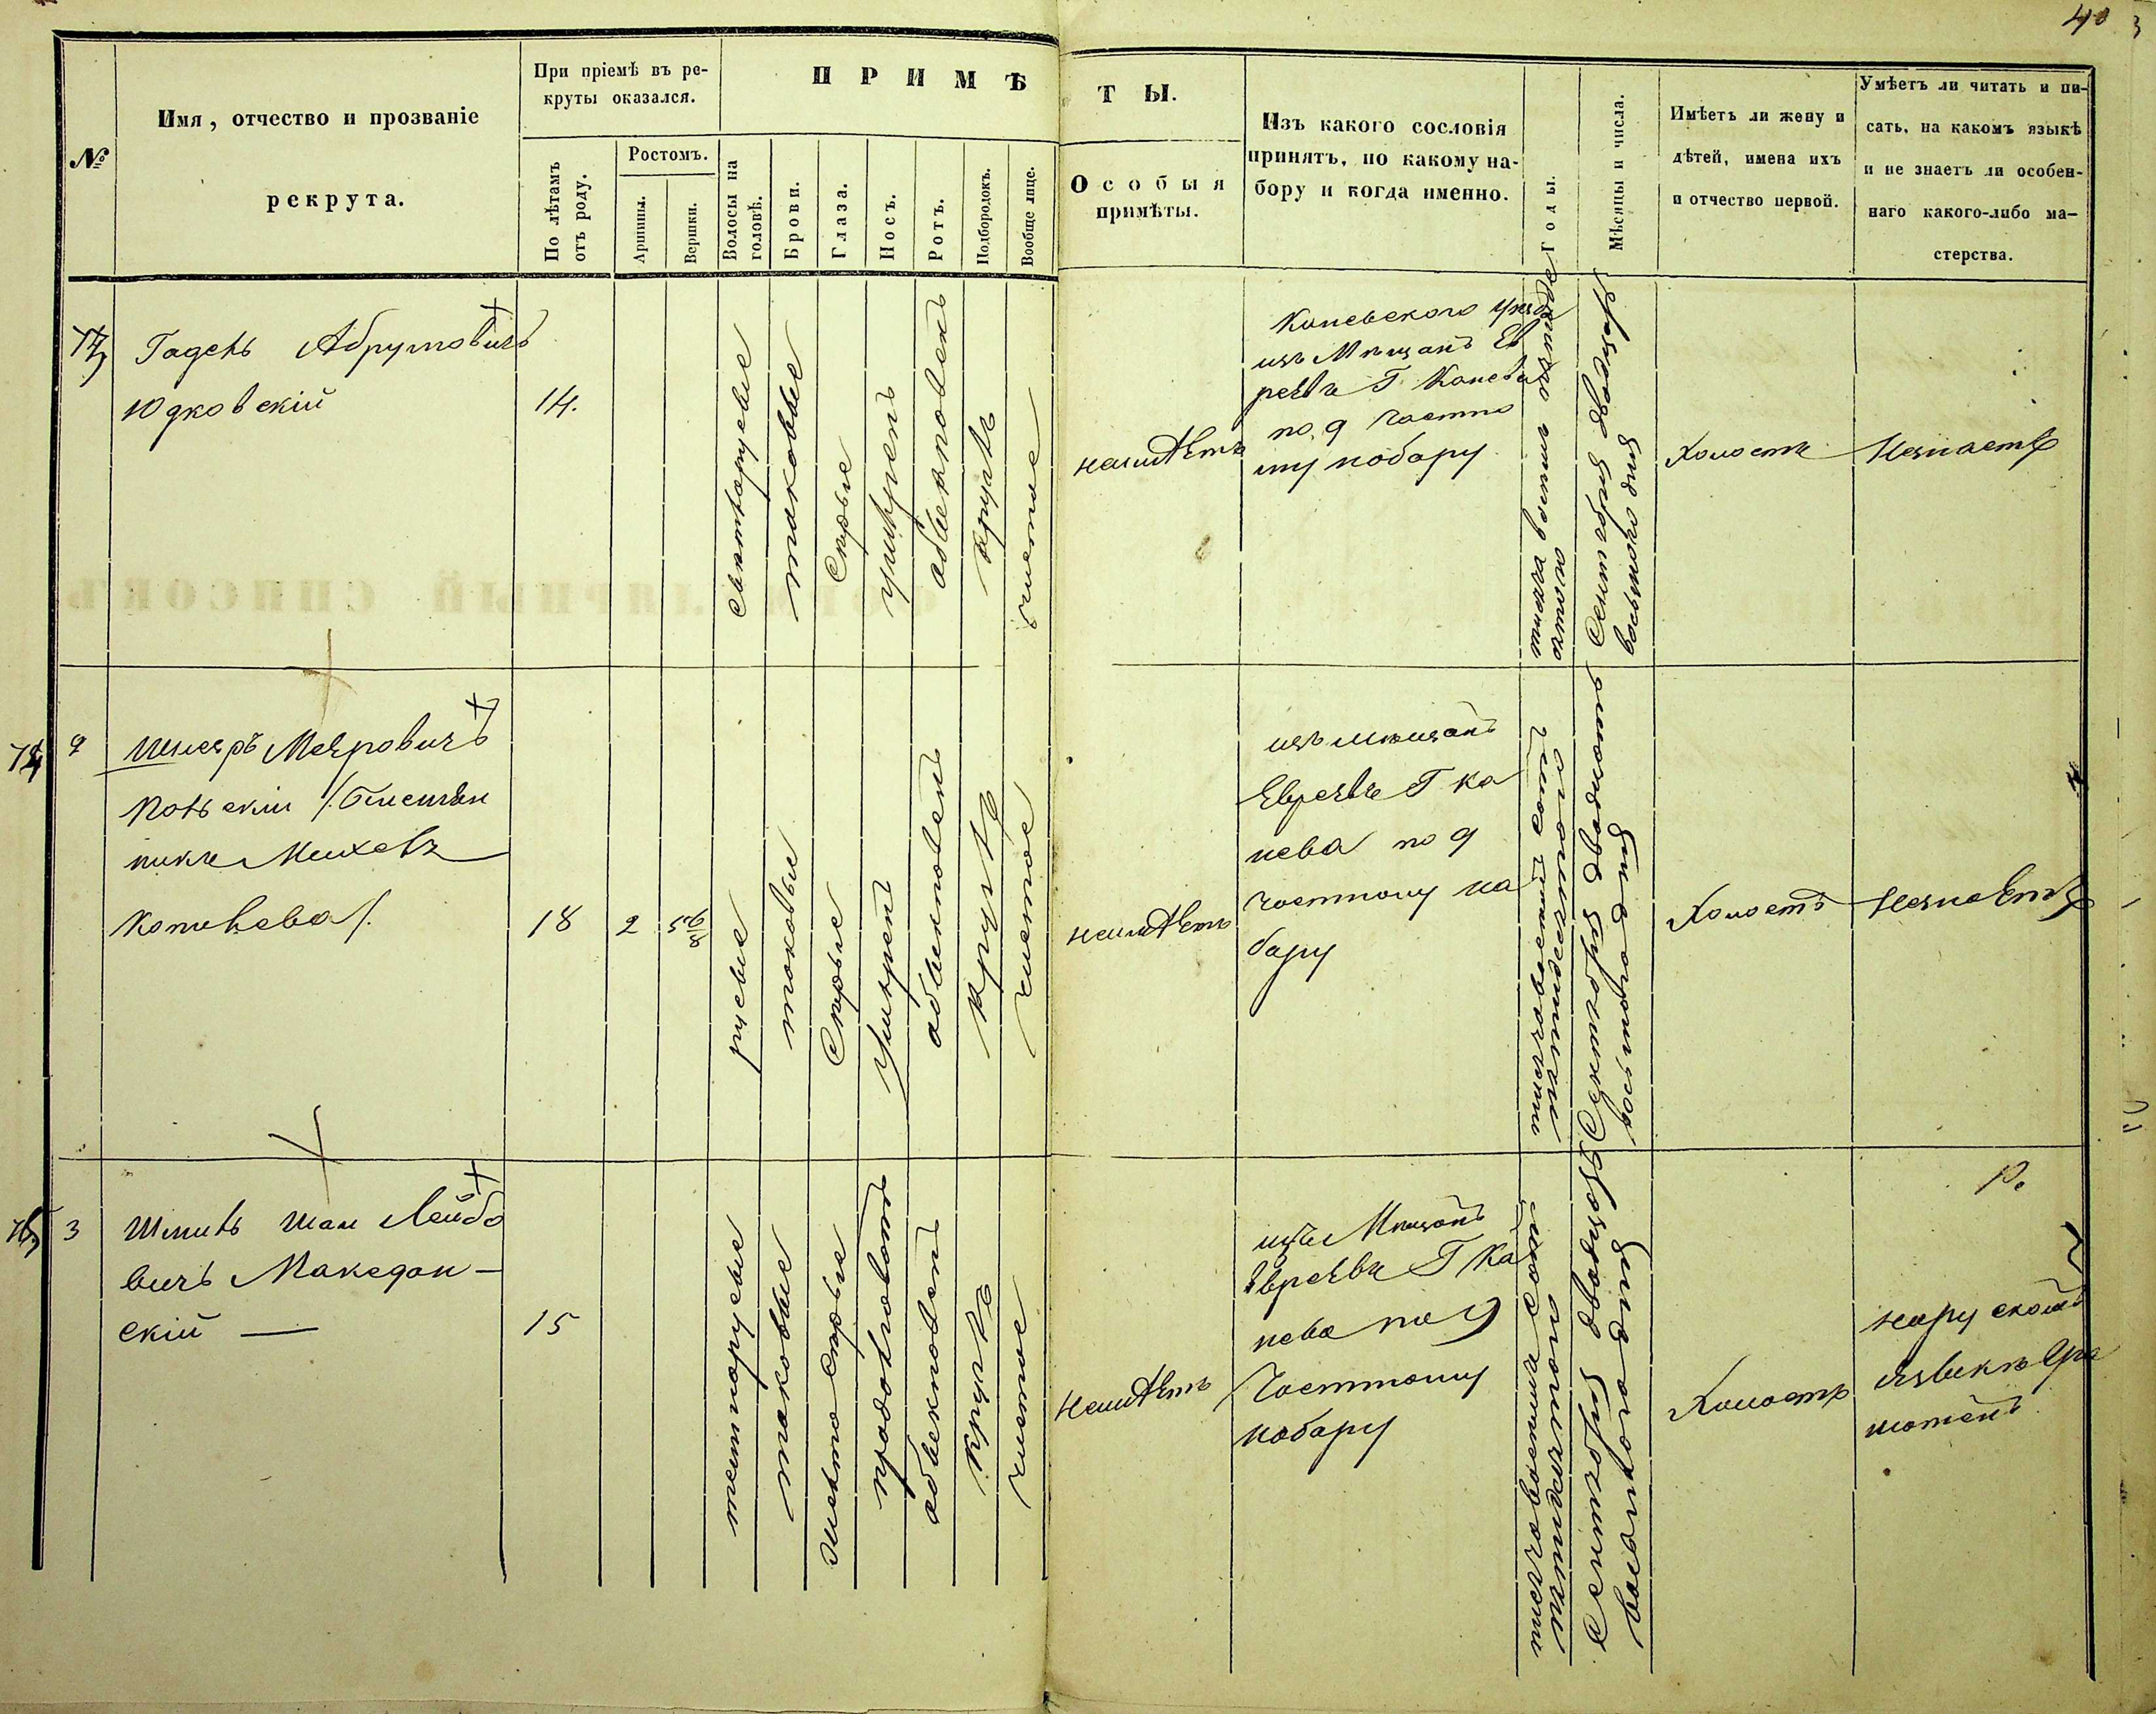 40
№
Имя, отчество и прозваніе
рекрута.
При пріемѣ въ ре-
круты оказался.
По лѣтамъ
отъ роду.
Ростомъ.
Аршины.
Вершки.
ПРИМѢ
Волосы на
головѣ.
Брови.
Глаза.
Носъ.
Ротъ.
Подбородокъ.
Вообще лице.
ТЫ.
Особыя
примѣты.
Изъ какого сословія
принятъ, по какому на-
бору и когда именно.
Годы.
Мѣсяцы и числа.
Имѣетъ ли жену и
дѣтей, имена ихъ
и отчество первой.
Умѣетъ ли читать и пи-
сать, на какомъ языкѣ
и не знаетъ ли особен-
наго какого-либо ма-
стерства.
Абрумовичъ
Юдковскій
14.
светлорусые
таковые
Серые
умѣрен
обыкновенъ
круглъ
чистое
неимѣетъ
Каневского уезда
изъ Мещанъ Ев
реевъ Г Канева
по 9 частно
му набору
Сентября двадцать
восьмого дня
Холостъ
Незнаетъ
2
Меяровичъ
18
2
5 6/8
русые
таковые
Серые
умѣрен
обыкновен
круглъ
чистое
неимѣетъ
изъ мещанъ
Евреевъ Г Ка
нева по 9
частному на
бору
тысяча восемь сотъ
пятидесятого
Сентября двадцать
восьмого дня
Холостъ
Незнаетъ
75
3
Лейбо
вичъ Македон-
скій —
15
темнорусые
таковые
Серые
продолговатъ
обыкновен
круглъ
чистое
неимѣетъ
изъ Мещанъ
Евреевъ Г Ка
нева по 9
Частному
набору
тысяча восемь сотъ
пятидесятого
Сентября двадцать
восьмого дня
Холостъ
Р.
на руском
языке Гра
мотенъ